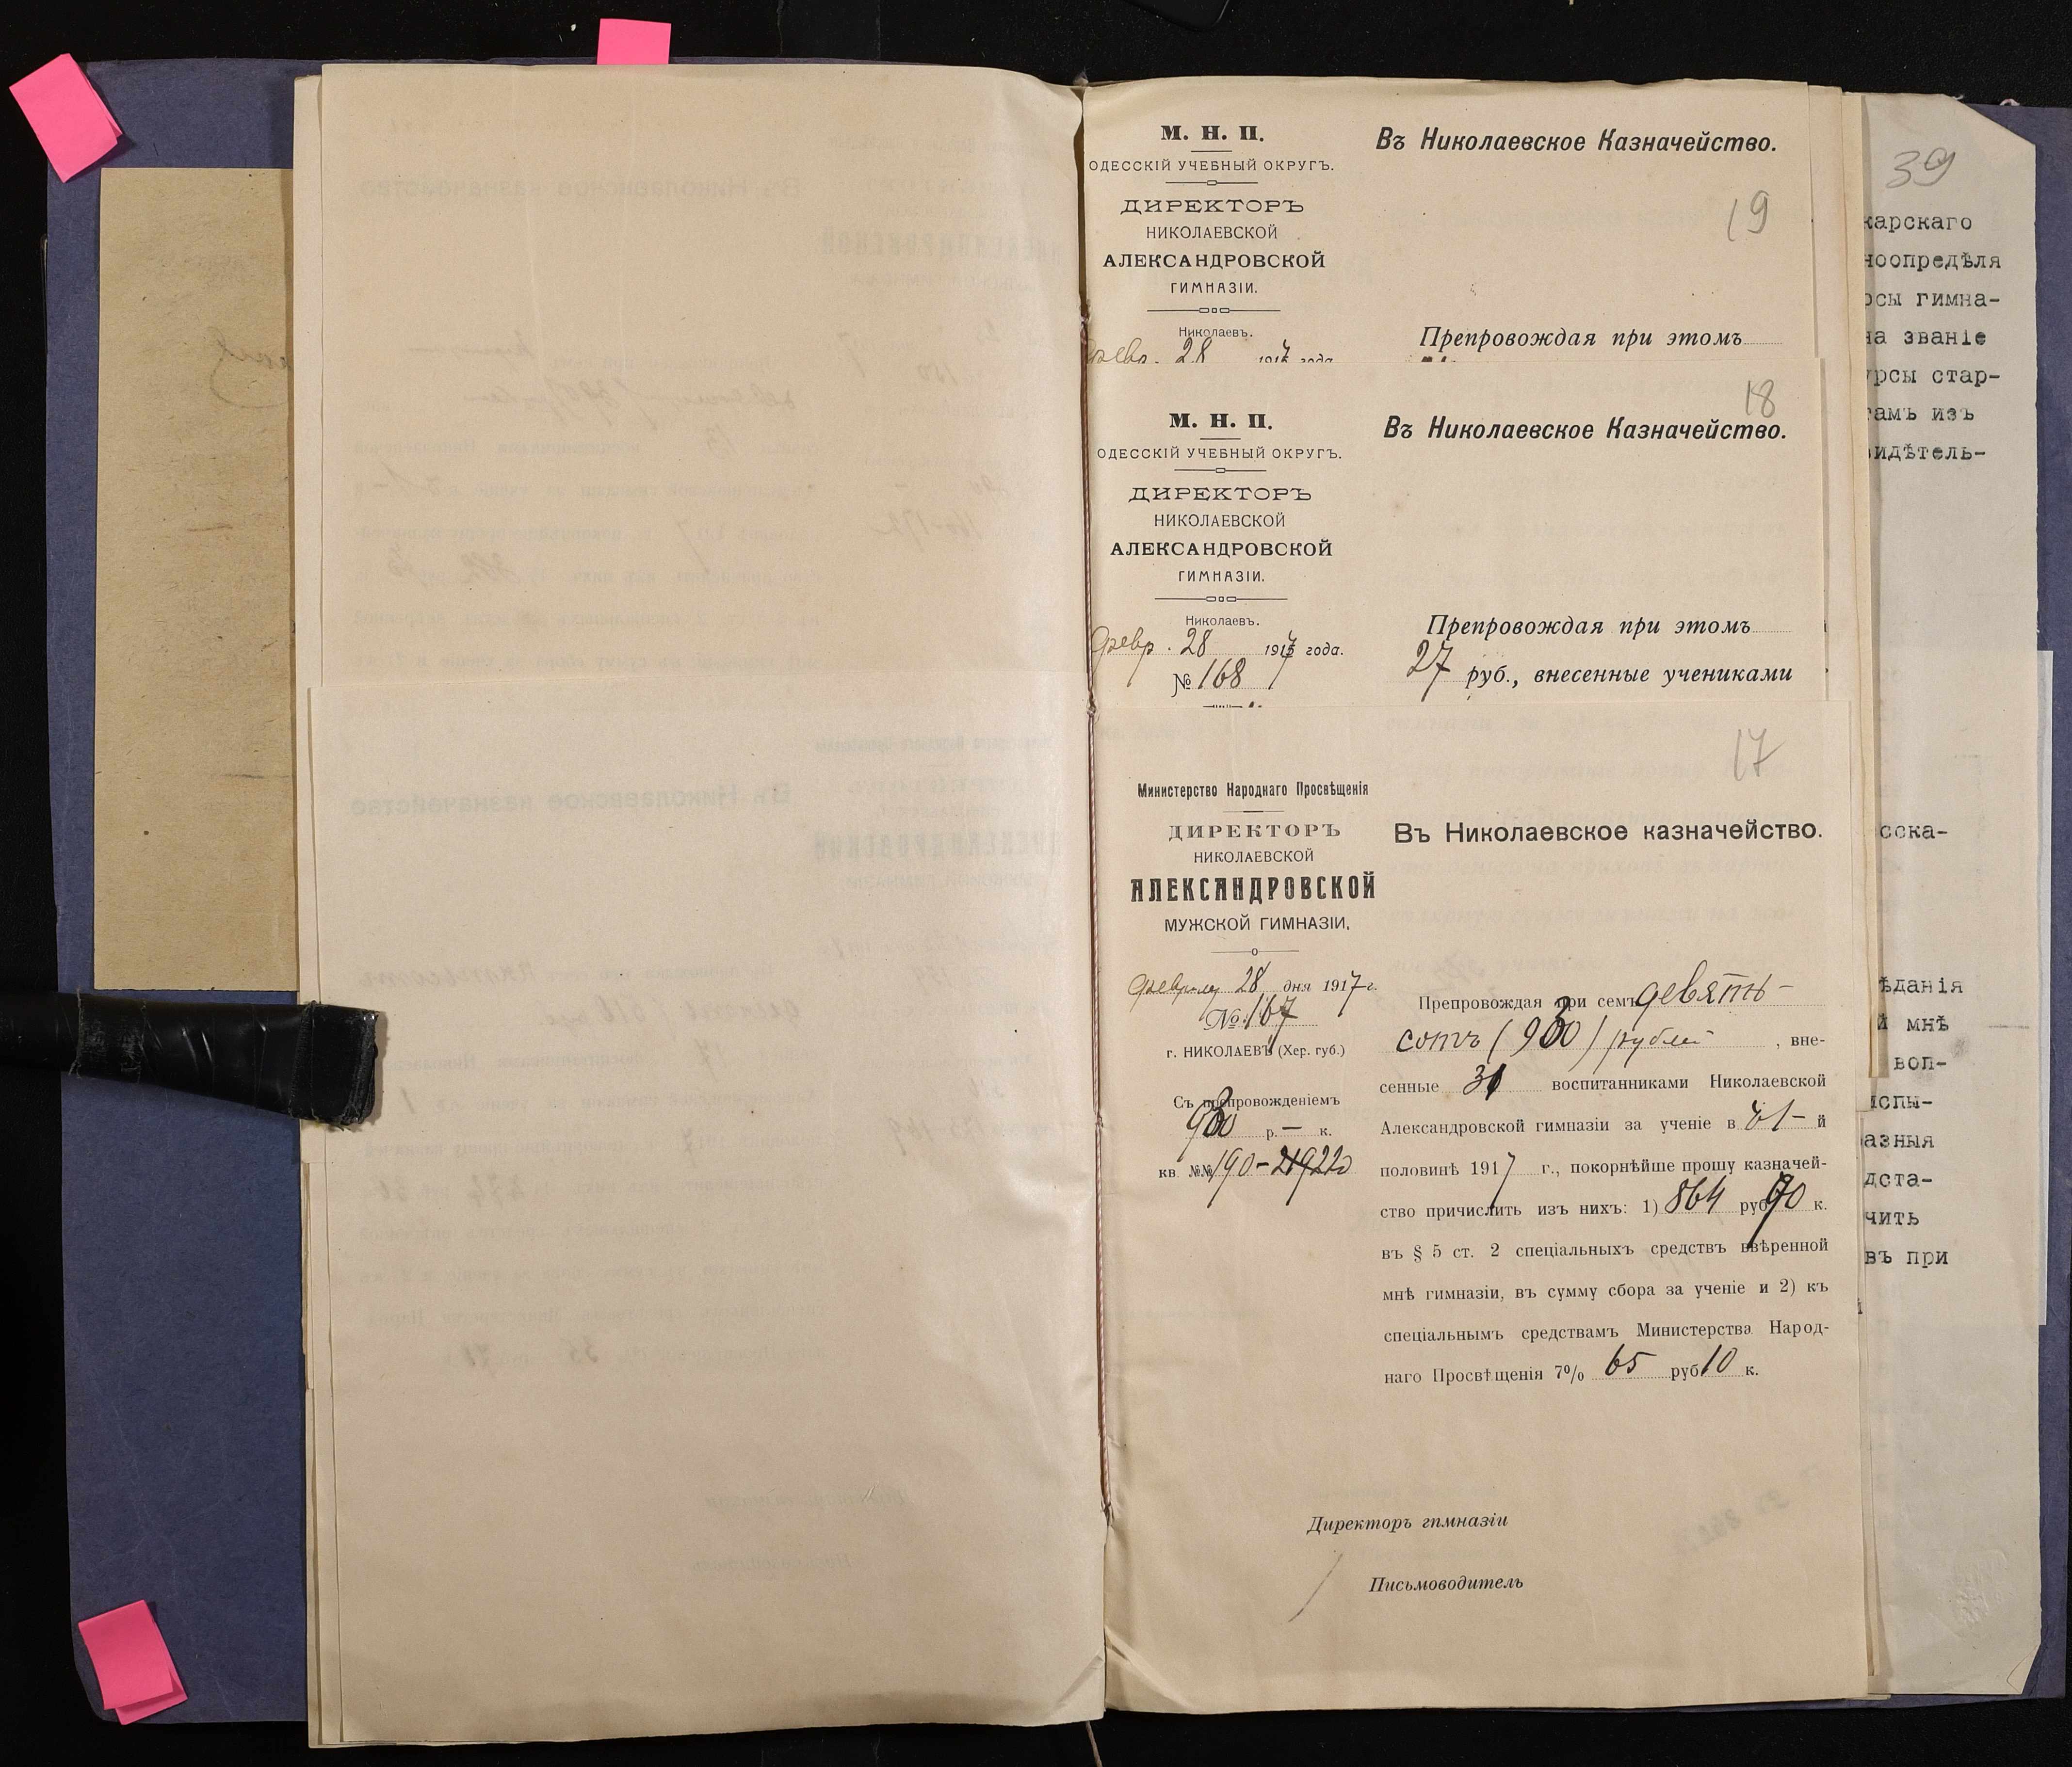 М. Н. П.
ОДЕССКІЙ УЧЕБНЫЙ ОКРУГЪ.
ДИРЕКТОРЪ
НИКОЛАЕВСКОЙ
АЛЕКСАНДРОВСКОЙ
ГИМНАЗІИ.
Николаевъ.
февр. 28 1917 года
Въ Николаевское Казначейство.
19
Препровождая при этомъ
М. Н. П.
ОДЕССКІЙ УЧЕБНЫЙ ОКРУГЪ.
ДИРЕКТОРЪ
НИКОЛАЕВСКОЙ
АЛЕКСАНДРОВСКОЙ
ГИМНАЗІИ.
Николаевъ.
февр. 28 1917 года.
№ 168
18
Въ Николаевское Казначейство.
Препровождая при этомъ
27 руб., внесенные учениками
17
Министерство Народнаго Просвѣщенія
ДИРЕКТОРЪ
НИКОЛАЕВСКОЙ
АЛЕКСАНДРОВСКОЙ
МУЖСКОЙ ГИМНАЗІИ.
28 дня 1917 г.
№ 167
г. НИКОЛАЕВЪ (Хер. губ.)
Съ препровожденіемъ
930 р. — к.
кв. №№ 190-220
Въ Николаевское казначейство.
Препровождая при семъ девять-
сотъ (930) рублей , вне-
сенные 31 воспитанниками Николаевской
Александровской гимназіи за ученіе в й
половинѣ 1917 г., покорнѣйше прошу казначей-
ство причислить изъ нихъ: 1) 864 руб 90 к.
въ § 5 ст. 2 спеціальныхъ средствъ ввѣренной
мнѣ гимназіи, въ сумму сбора за ученіе и 2) къ
спеціальнымъ средствамъ Министерства Народ-
наго Просвѣщенія 7% 65 руб 10 к.
Директоръ гимназіи
Письмоводитель
39
карскаго
ноопредѣля
рсы гимна-
на званіе
урсы стар-
тамъ изъ
видѣтель-
сска-
ѣданія
й мнѣ
воп-
испы-
азныя
дста-
чить
въ при